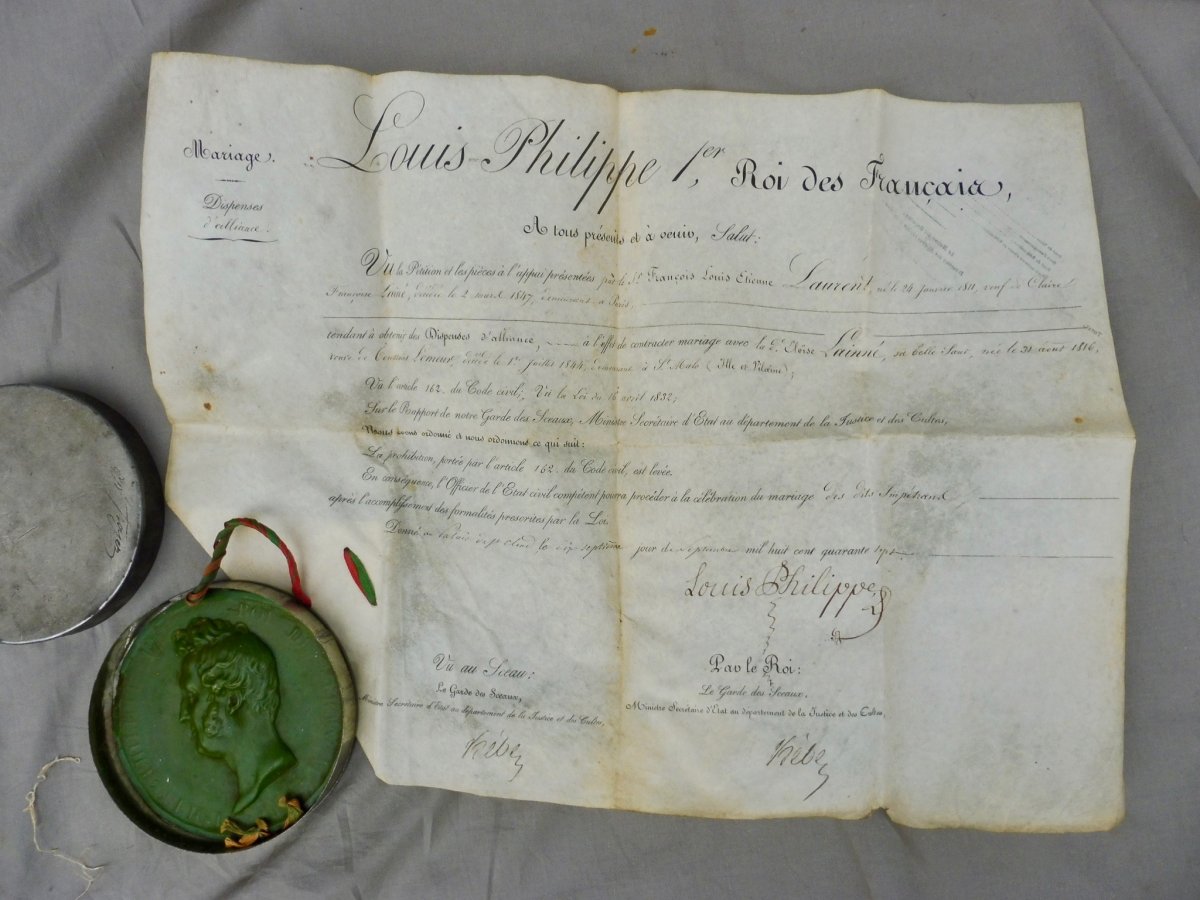 Mariage.
Dispenses
d'alliance.
Louis-Philippe 1er, Roi des Français,
A tous présents et à venir, Salut:
Vu la Pétition et les pièces à l'appui présentées par le Sr. François Louis Etienne Laurent, né le 24 janvier 1811, veuf de Claire
Françoise Lainné, décédée le 2 mars 1847, demeurant à Paris,
tendant à obtenir des Dispenses d'alliance, à l'effet de contracter mariage avec la De. Eloïse Lainné, sa belle Sœur, née le 31 août 1816,
veuve de Lemeur, décédé le 1er Juillet 1844, demeurant à St. Malo (Ille et Vilaine);
Vu l'article 162 du Code civil; Vu la Loi du 16 avril 1832;
Sur le Rapport de notre Garde des Sceaux, Ministre Secrétaire d'Etat au département de la Justice et des Cultes,
Nous avons ordonné et nous ordonnons ce qui suit:
La prohibition, portée par l'article 162 du Code civil, est levée.
En conséquence, l'Officier de l'Etat civil compétent pourra procéder à la célébration du mariage des dits Impétrants
après l'accomplissement des formalités prescrites par la Loi.
Donné au Palais de St Cloud le dix septième jour de Septembre mil huit cent quarante sept
Louis Philippe
Vu au Sceau:
Le Garde des Sceaux,
Ministre Secrétaire d'Etat au département de la Justice et des Cultes,
Hébert
Par le Roi:
Le Garde des Sceaux,
Ministre Secrétaire d'Etat au département de la Justice et des Cultes,
Hébert